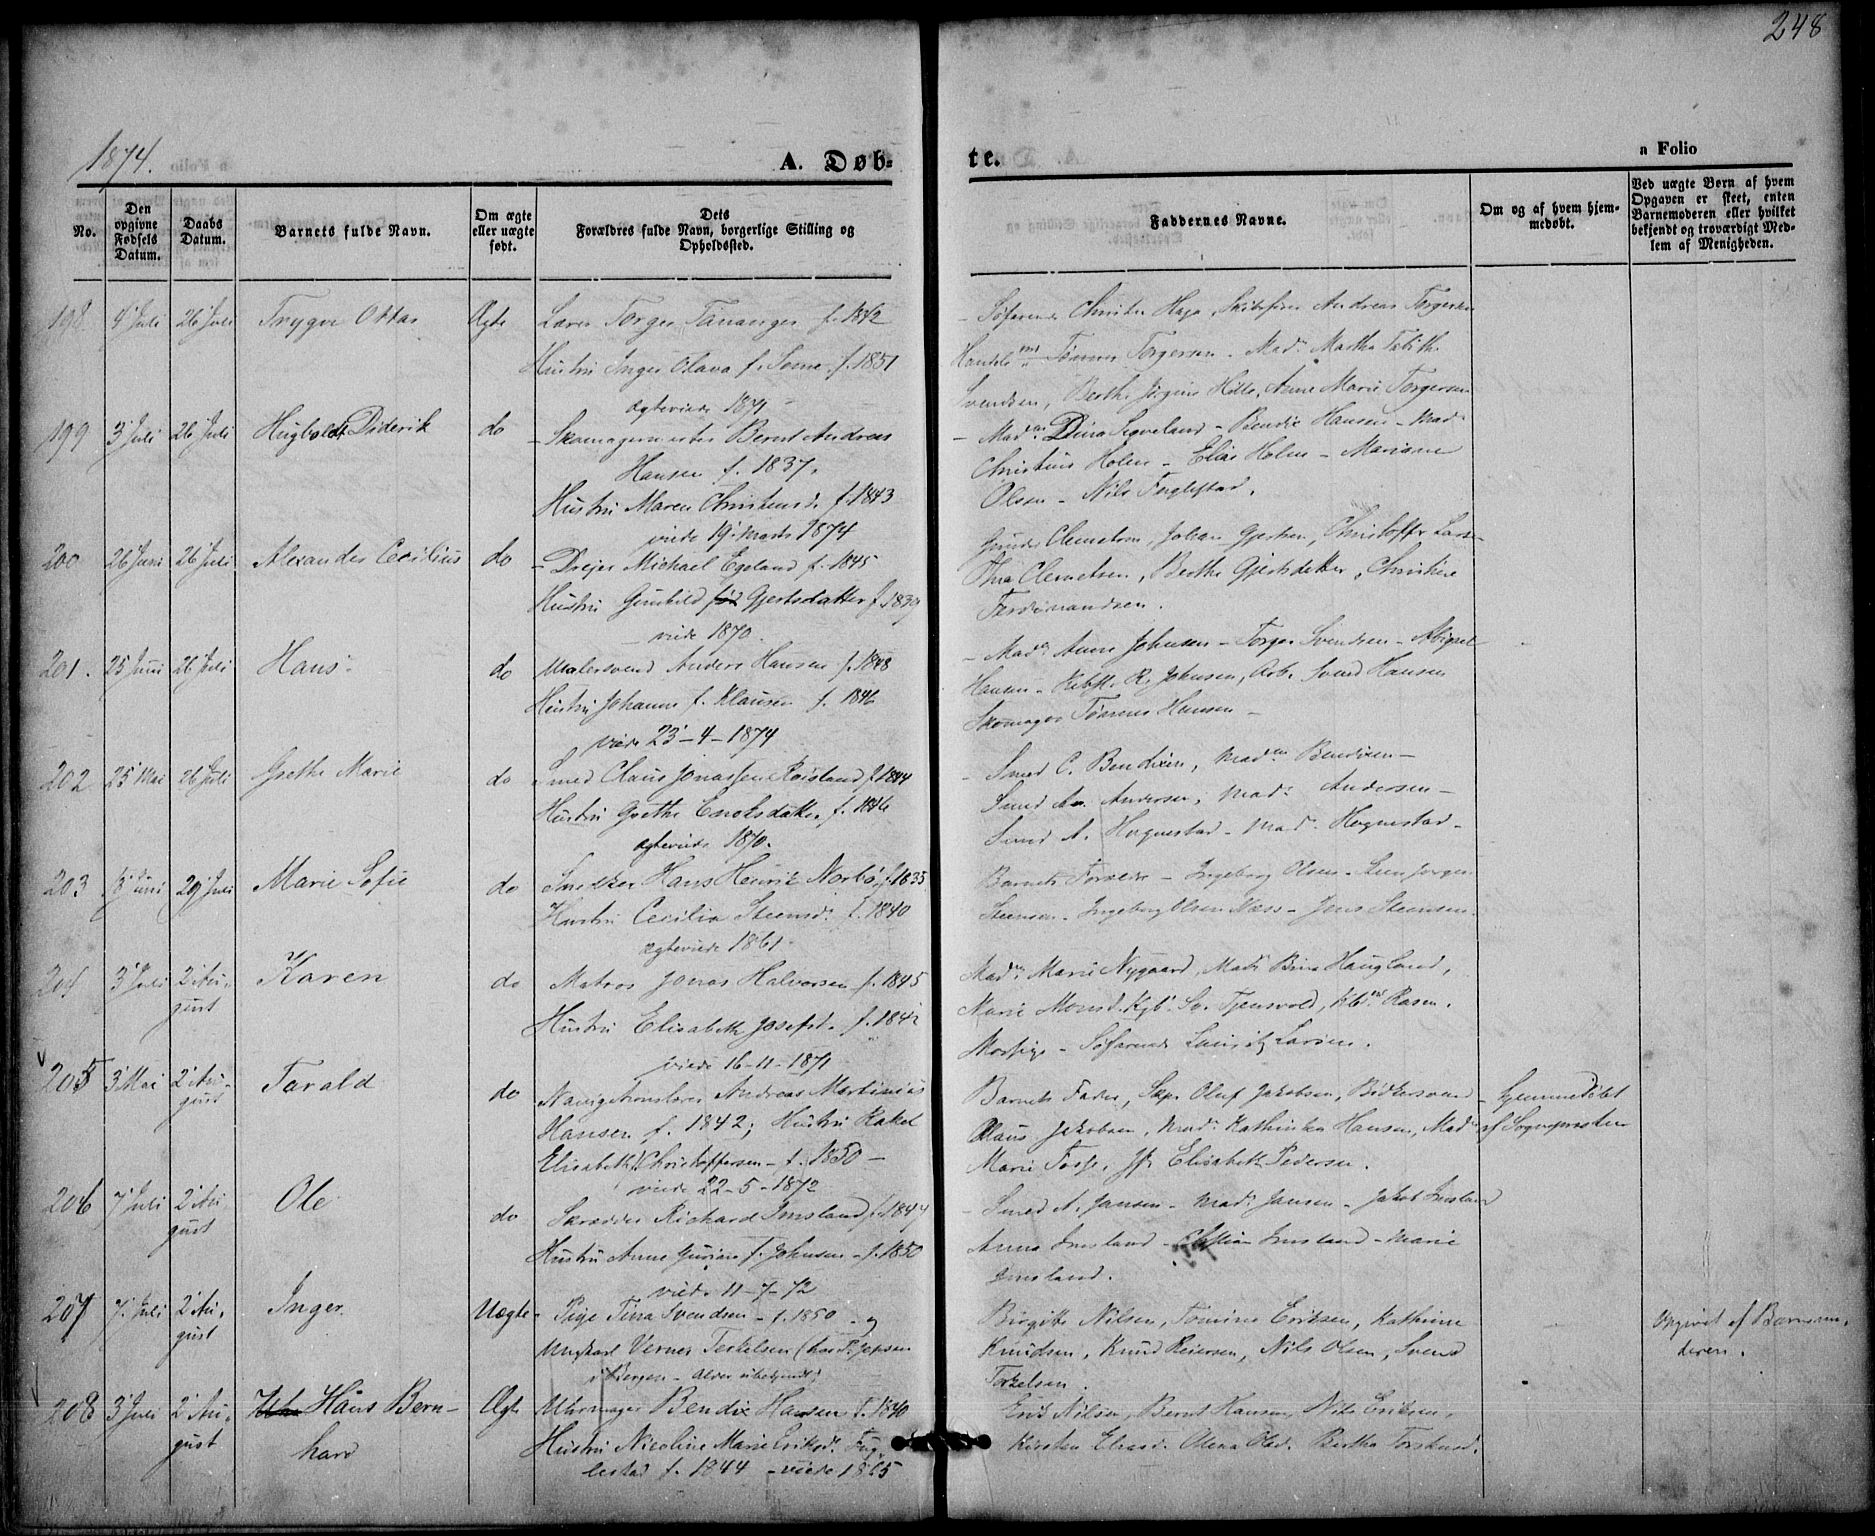 248
1874.
A. Døb=
te.
n Folio
No.
Den opgivne Fødsels Datum.
Daabs Datum.
Barnets fulde Navn.
Om ægte eller uægte født.
Dets Forældres fulde Navn, borgerlige Stilling og Opholdssted.
Faddernes Navne.
Om og af hvem hjemmedøbt.
Ved uægte Børn af hvem Opgaven er skeet, enten Barnemoderen eller hvilket bekjendt og troværdigt Medlem af Menigheden.
198 4 Juli 26 Juli Trygve Ottar Ægte Lærer Torger Tananger f. 1842
Hustru Inger Olava f. Some f. 1851
ægteviede 1871
Søfarende Christen Haga, Andreas Torgersen
Tønnes Torgersen - Mad. Martha Tabith.
Svendsen, Berthe Jørgine Hille, Anne Marie Torgersen
199 3 Juli 26 Juli Hugboldt Diderik do Skomagermester Bernt Andreas
Hansen f. 1837,
Hustru Maren Christensd. f. 1843
viede 19. Marts 1874
Mad. Dina Sægveland - Bendix Hansen - Mad.
Christine Holm - Elias Holm - Mariane
Olsen - Nils Fuglestad.
200 26 Juni 26 Juli Alexander Cecilius do Drejer Michael Egeland f. 1845
Hustru Gunhild Gjertsdatter f. 1839
viede 1870.
Clemetsen, Johan Gjertsen, Christoffer Larsen
Clemetsen, Berthe Gjertsdatter, Christine
Ferdinandsen.
201. 25 Juni 26 Juli Hans do Malersvend Anders Hansen f. 1848
Hustru Johanne f. Klausen f. 1846
viede 23-4-1874
Mad. Anne Johnsen - Torger Svendsen - Abigael
Hansen - R. Johnsen, Arb. Svend Hansen
Skomager Tønnes Hansen -
202 25 Mai 26 Juli Grethe Marie do Smed Claus Jonassen Røisland f. 1844
Hustru Grethe Enoksdatter f. 1846
ægteviede 1870.
Smed C. Bendixen, Mad. Bendixen -
Smed A. Andersen, Mad. Andersen -
Smed A. Hognestad - Mad. Hognestad -
203 Juni 29 Juli Marie Sofie do Snedker Hans Henrik Norbø, f. 1835
Hustru Cecilia Steensd. f. 1840
ægteviede 1861.
Barnets Forældre - Ingeborg Olsen - Steen Jørgen
Steensen - Ingeborg Olsen Næss - Jens Steensen.
204 3 Juli 2 August Karen do Matros Jonas Halvorsen f. 1845
Hustru Elisabeth Josefsd. f. 1842
viede 16-11-1871
Mad. Marie Nygaard, Mad. Berta Haugland,
Marie Monsd. Sv. Tjensvold, Rasm.
Søfarende Lauritz Larsen.
205 3 Mai 2 August Tarald do Navigationslærer Andreas Martinius
Hansen f. 1842; Hustru Rakel
Elisabeth Christoffersen - f. 1850 -
viede 22-5-1872
Barnets Fader, Skpr. Oluf Jakobsen, Bødkersvend
Claus Jakobsen, Mad. Kathinka Hansen, Mad.
Marie Fosse, Elisabeth Pedersen.
Hjemmedøbt
af Sognepræsten
206 7 Juli 2 August Ole do Skrædder Richard Imsland f. 1847
Hustru Anne Gurine f. Johnsen - f. 1850
viede 11-7-72
Smed A. Jansen - Mad. Jansen - Jakob Imsland
Anna Imsland - Imsland - Marie
Imsland.
207 7. Juli 2 August Inger. Uægte Pige Tina Svendsen - f. 1850 - og
Ungkarl Verner Terkelsen
i Bergen - Alder ubekjendt)
Birgitte Nilsen, Tomine Eriksen, Kathrine
Knudsen, Knud Reiersen, Nils Olsen, Svend
Torkelsen.
Opgivet af Barnemoderen.
208 3 Juli 2 August Hans Bernhard Ægte Uhrmager Bendix Hansen f. 1840
Hustru Nicoline Marie Eriksd. Fuglestad f. 1844 - viede 1865
Erik Nilsen, Bernt Hansen, Nils Eriksen,
Kirsten Eliasd. Olena Olsd. Bertha Torstensd.